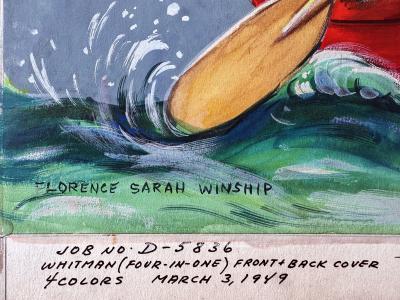 FLORENCE SARAH WINSHIP
JOB NO. D-5836
WHITMAN (FOUR-IN-ONE) FRONT + BACK COVER
4 COLORS MARCH 3, 1949